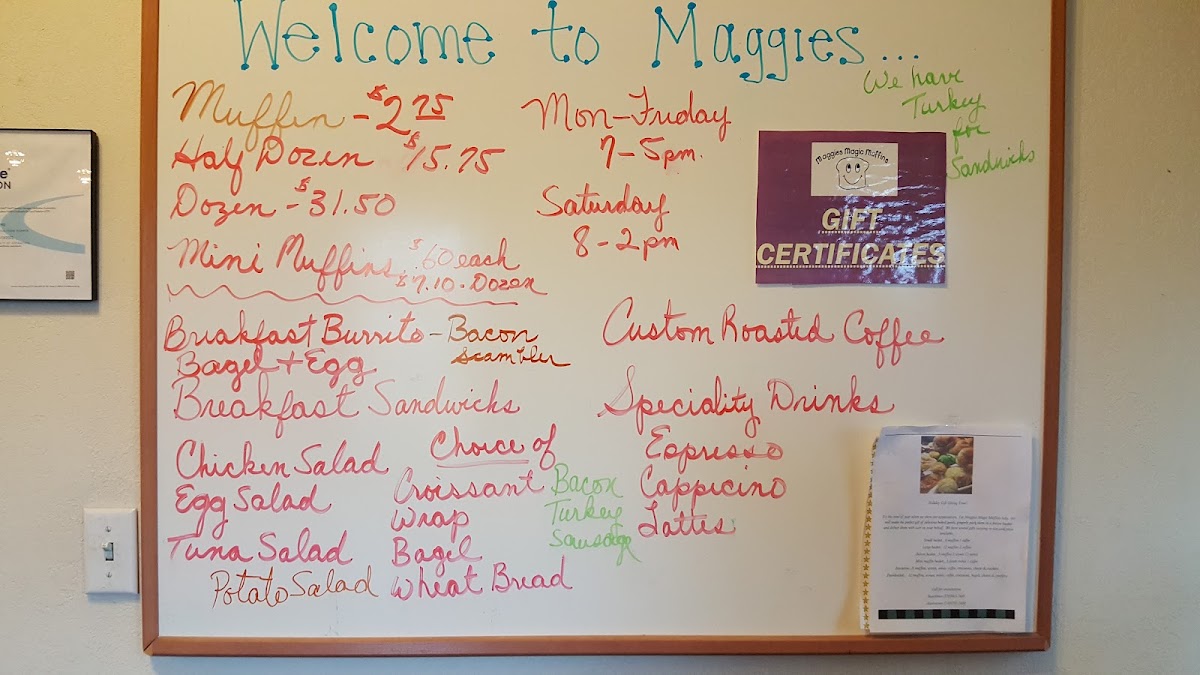 Welcome to Maggies...
We have
Turkey
for
Sandwichs
Muffin - $2.75
Half Dozen $15.75
Dozen - $31.50
Mini Muffins $.60 each
$7.10 . Dozen
Mon-Friday
7-5pm.
Saturday
8-2pm
Maggies Magic Muffins
GIFT
CERTIFICATES
Breakfast Burrito - Bacon
Scambler
Bagel + Egg
Breakfast Sandwichs
Chicken Salad
Egg Salad
Tuna Salad
Potato Salad
Choice of
Croissant
Wrap
Bagel
Wheat Bread
Bacon
Turkey
Sausage
Custom Roasted Coffee
Speciality Drinks
Espresso
Cappicino
Lattes
ON